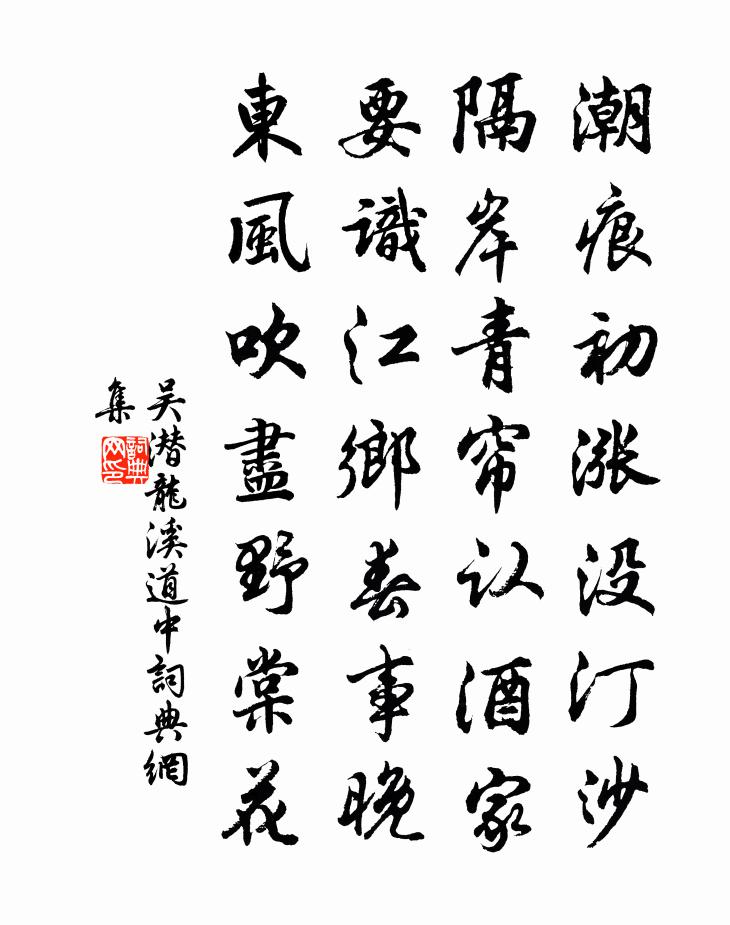 潮痕初漲没汀沙
隔岸青帘认酒家
要識江鄉春事晚
東風吹盡野棠花
吴潜龍溪道中詞典網
集
詞典网印